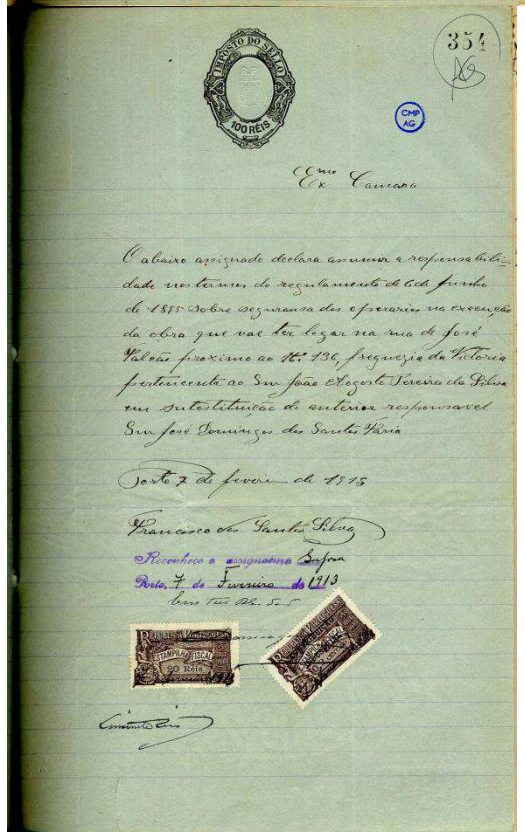 354
IMPOSTO DO SELLO
100 RÉIS
CMP
AG
Exmo Camara
O abaixo assignado declara assumir a responsabili-
dade nos termos do regulamento de 6 de Junho
de 1895 sobre seguransa dos operarios na execução
da obra que vae ter logar na rua de José
Falcão proximo ao No. 136, freguezia da Victoria
pertencente ao Snr João Augosto Pereira da Silva
em substituição do anterior responsavel
Snr José Domingos dos Santos Faria
Porto 7 de fevereiro de 1913
Francisco dos Santos Silva
Reconheço a assignatura Supra
Porto, 7 de Fevereiro de 1913
REPUBLICA PORTUGUESA
ESTAMPILHA FISCAL
20 Réis
1913